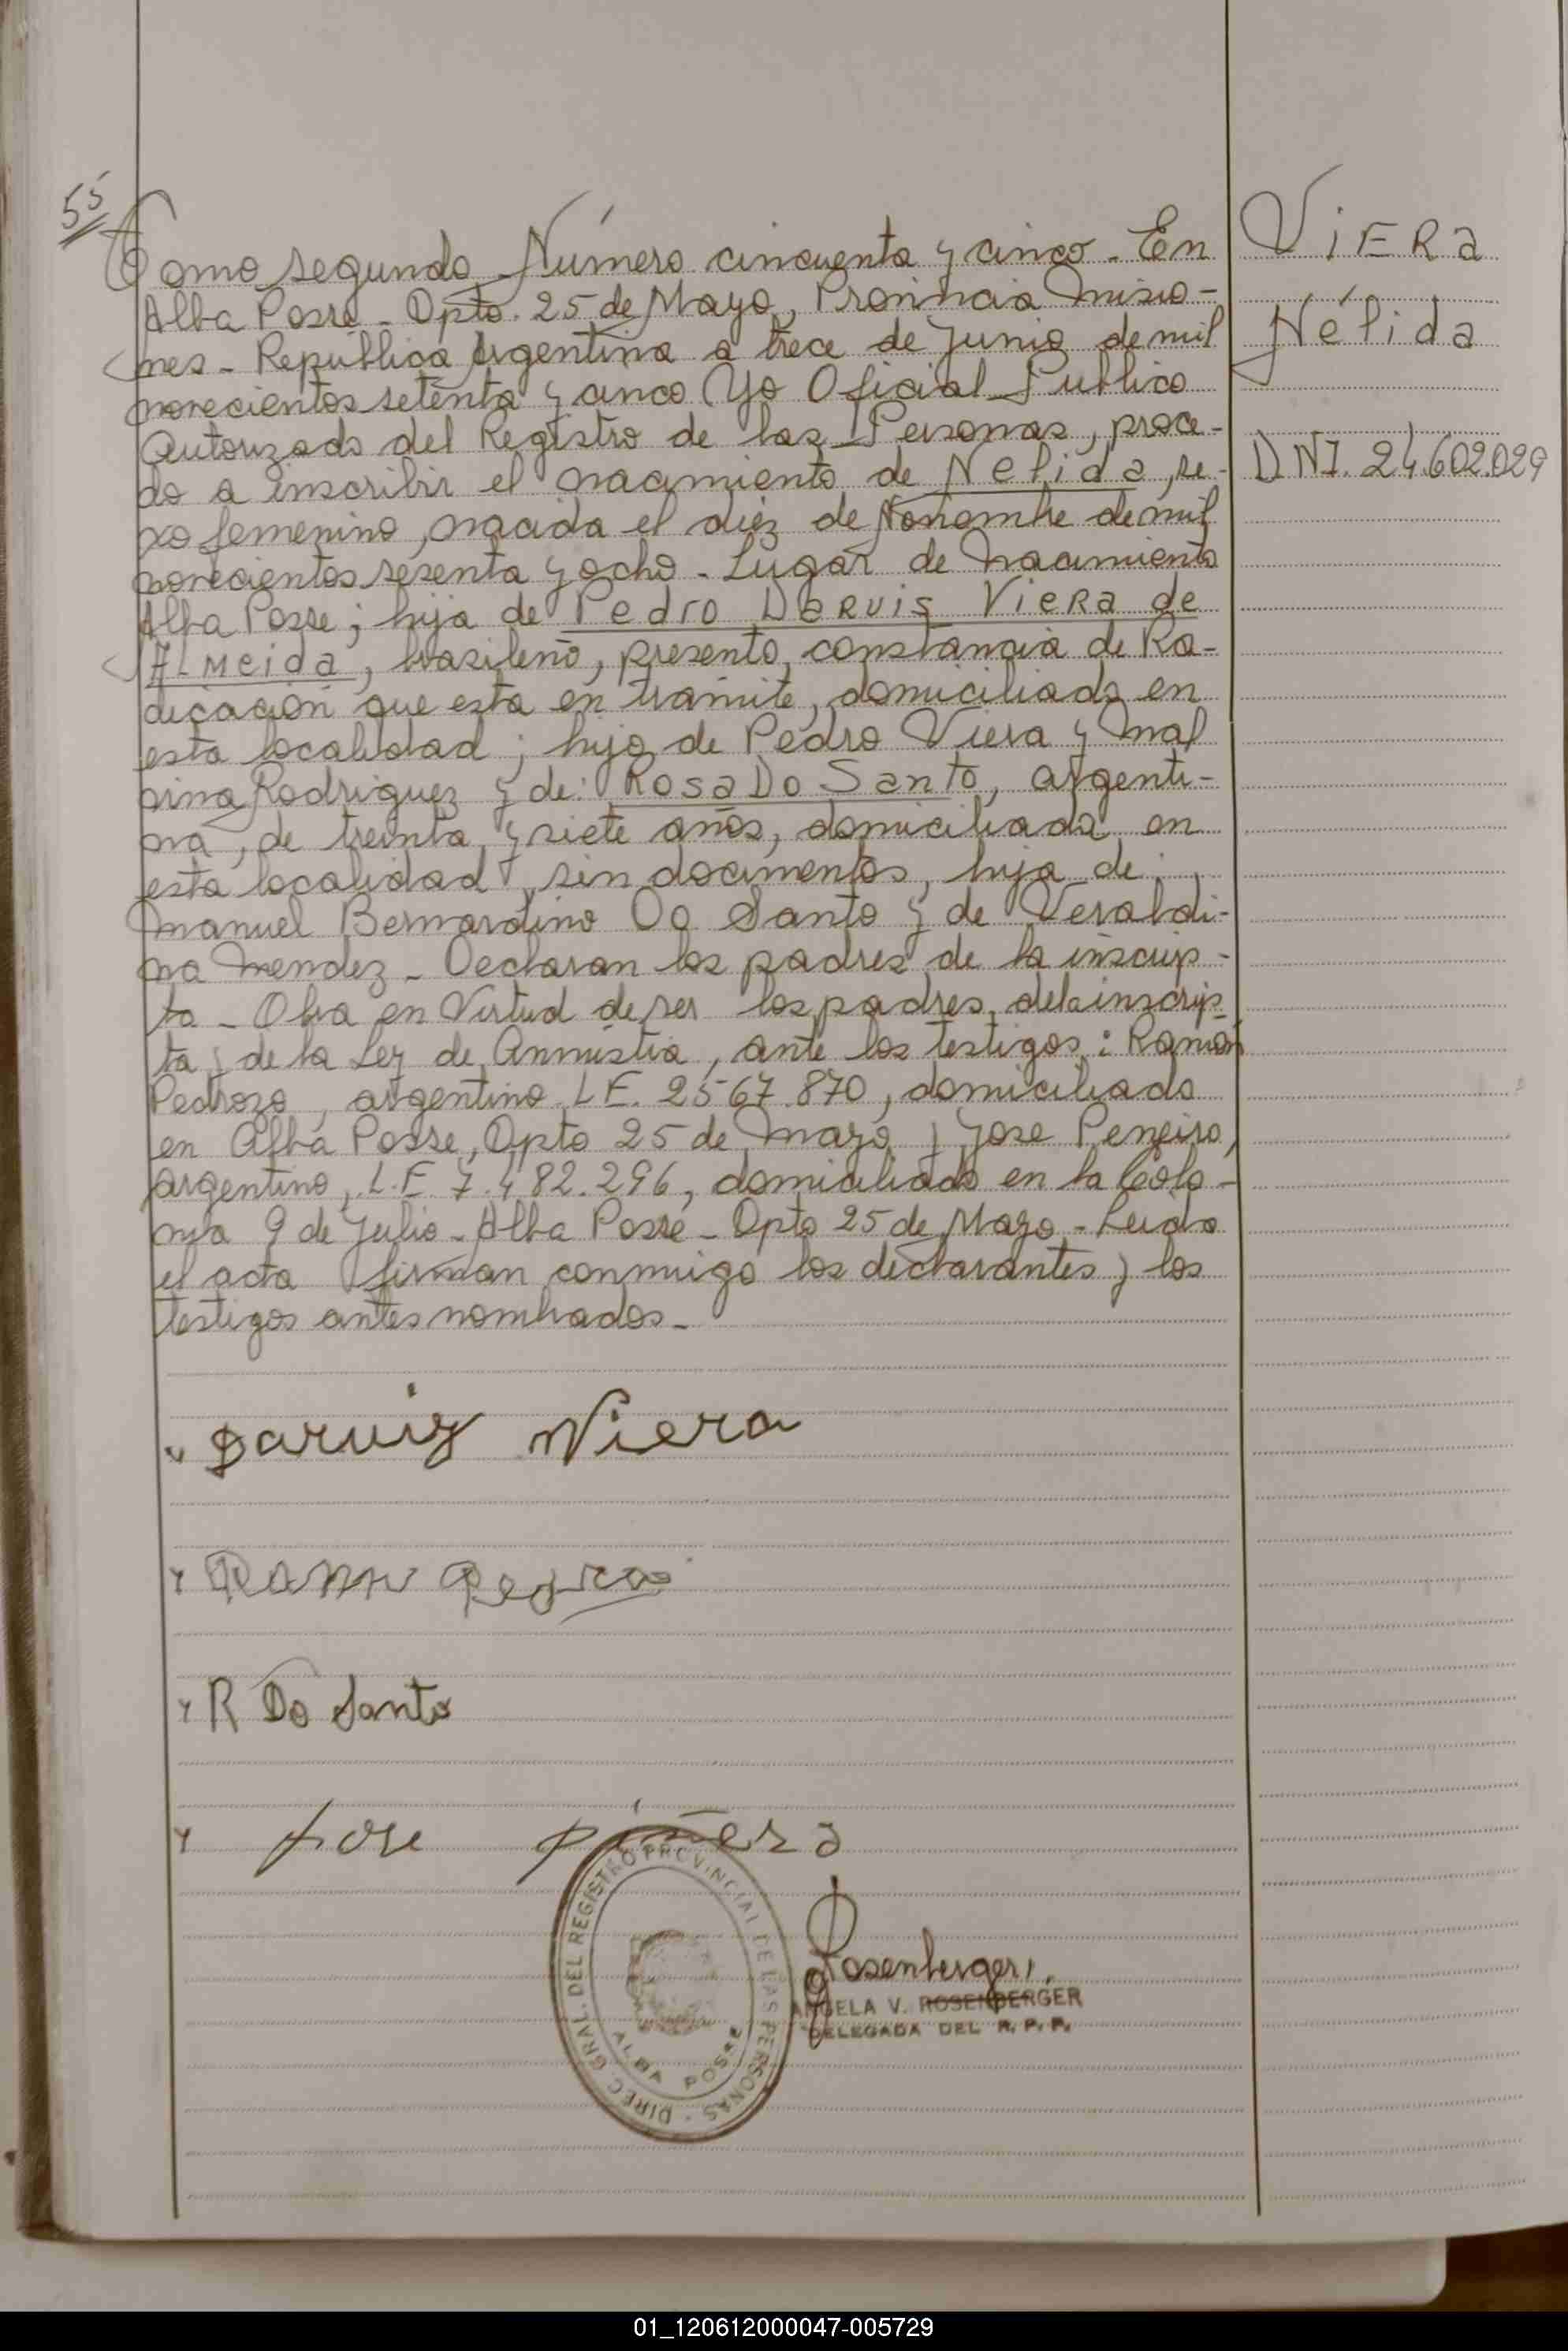 55
Tomo segundo Número cincuenta y cinco - En
Alba Posse - Dpto. 25 de Mayo, Provincia Misio-
nes - República Argentina a trece de Junio de mil
novecientos setenta y cinco Yo Oficial Publico
Autorizado del Registro de las Personas, proce-
do a inscribir el nacimiento de Nelida, se-
xo femenino, nacida el diez de Noviembre de mil
novecientos sesenta y ocho - Lugar de Nacimiento
Alba Posse; hija de Pedro DARVIS VIERA de
ALMEIDA, brasileño, presento constancia de Ra-
dicación que esta en tramite, domiciliado en
esta localidad; hijo de Pedro Viera y Mal
vina Rodriguez y de: ROSA DO SANTO, argenti-
na, de treinta y siete años, domiciliada en
esta localidad sin documentos, hija de:
Manuel Bernardino Do Santo y de Veraldi-
na Mendez - Declaran los padres de la inscrip-
ta - Obra en Virtud de ser los padres de la inscrip
ta y de la Ley de Amnistia, ante los testigos: Ramón
Pedrozo, argentino L.E. 2567.870, domiciliado
en Alba Posse, Dpto 25 de Mayo y Jose Peneiro,
argentino, L.E. 7.482.296, domiciliado en la Colo-
nia 9 de Julio - Alba Posse - Dpto 25 de Mayo - Leida
el acta firman conmigo los declarantes y los
testigos antes nombrados -
VIERA
Nélida
DNI. 24.602.029
Darviz Viera
R Do Santo
Jose
Rosenberger
DIREC. GRAL. DEL REGISTRO PROVINCIAL DE LAS PERSONAS -
ALBA POSSE
ANGELA V. ROSENBERGER
DELEGADA DEL R. P. P.
01_120612000047-005729